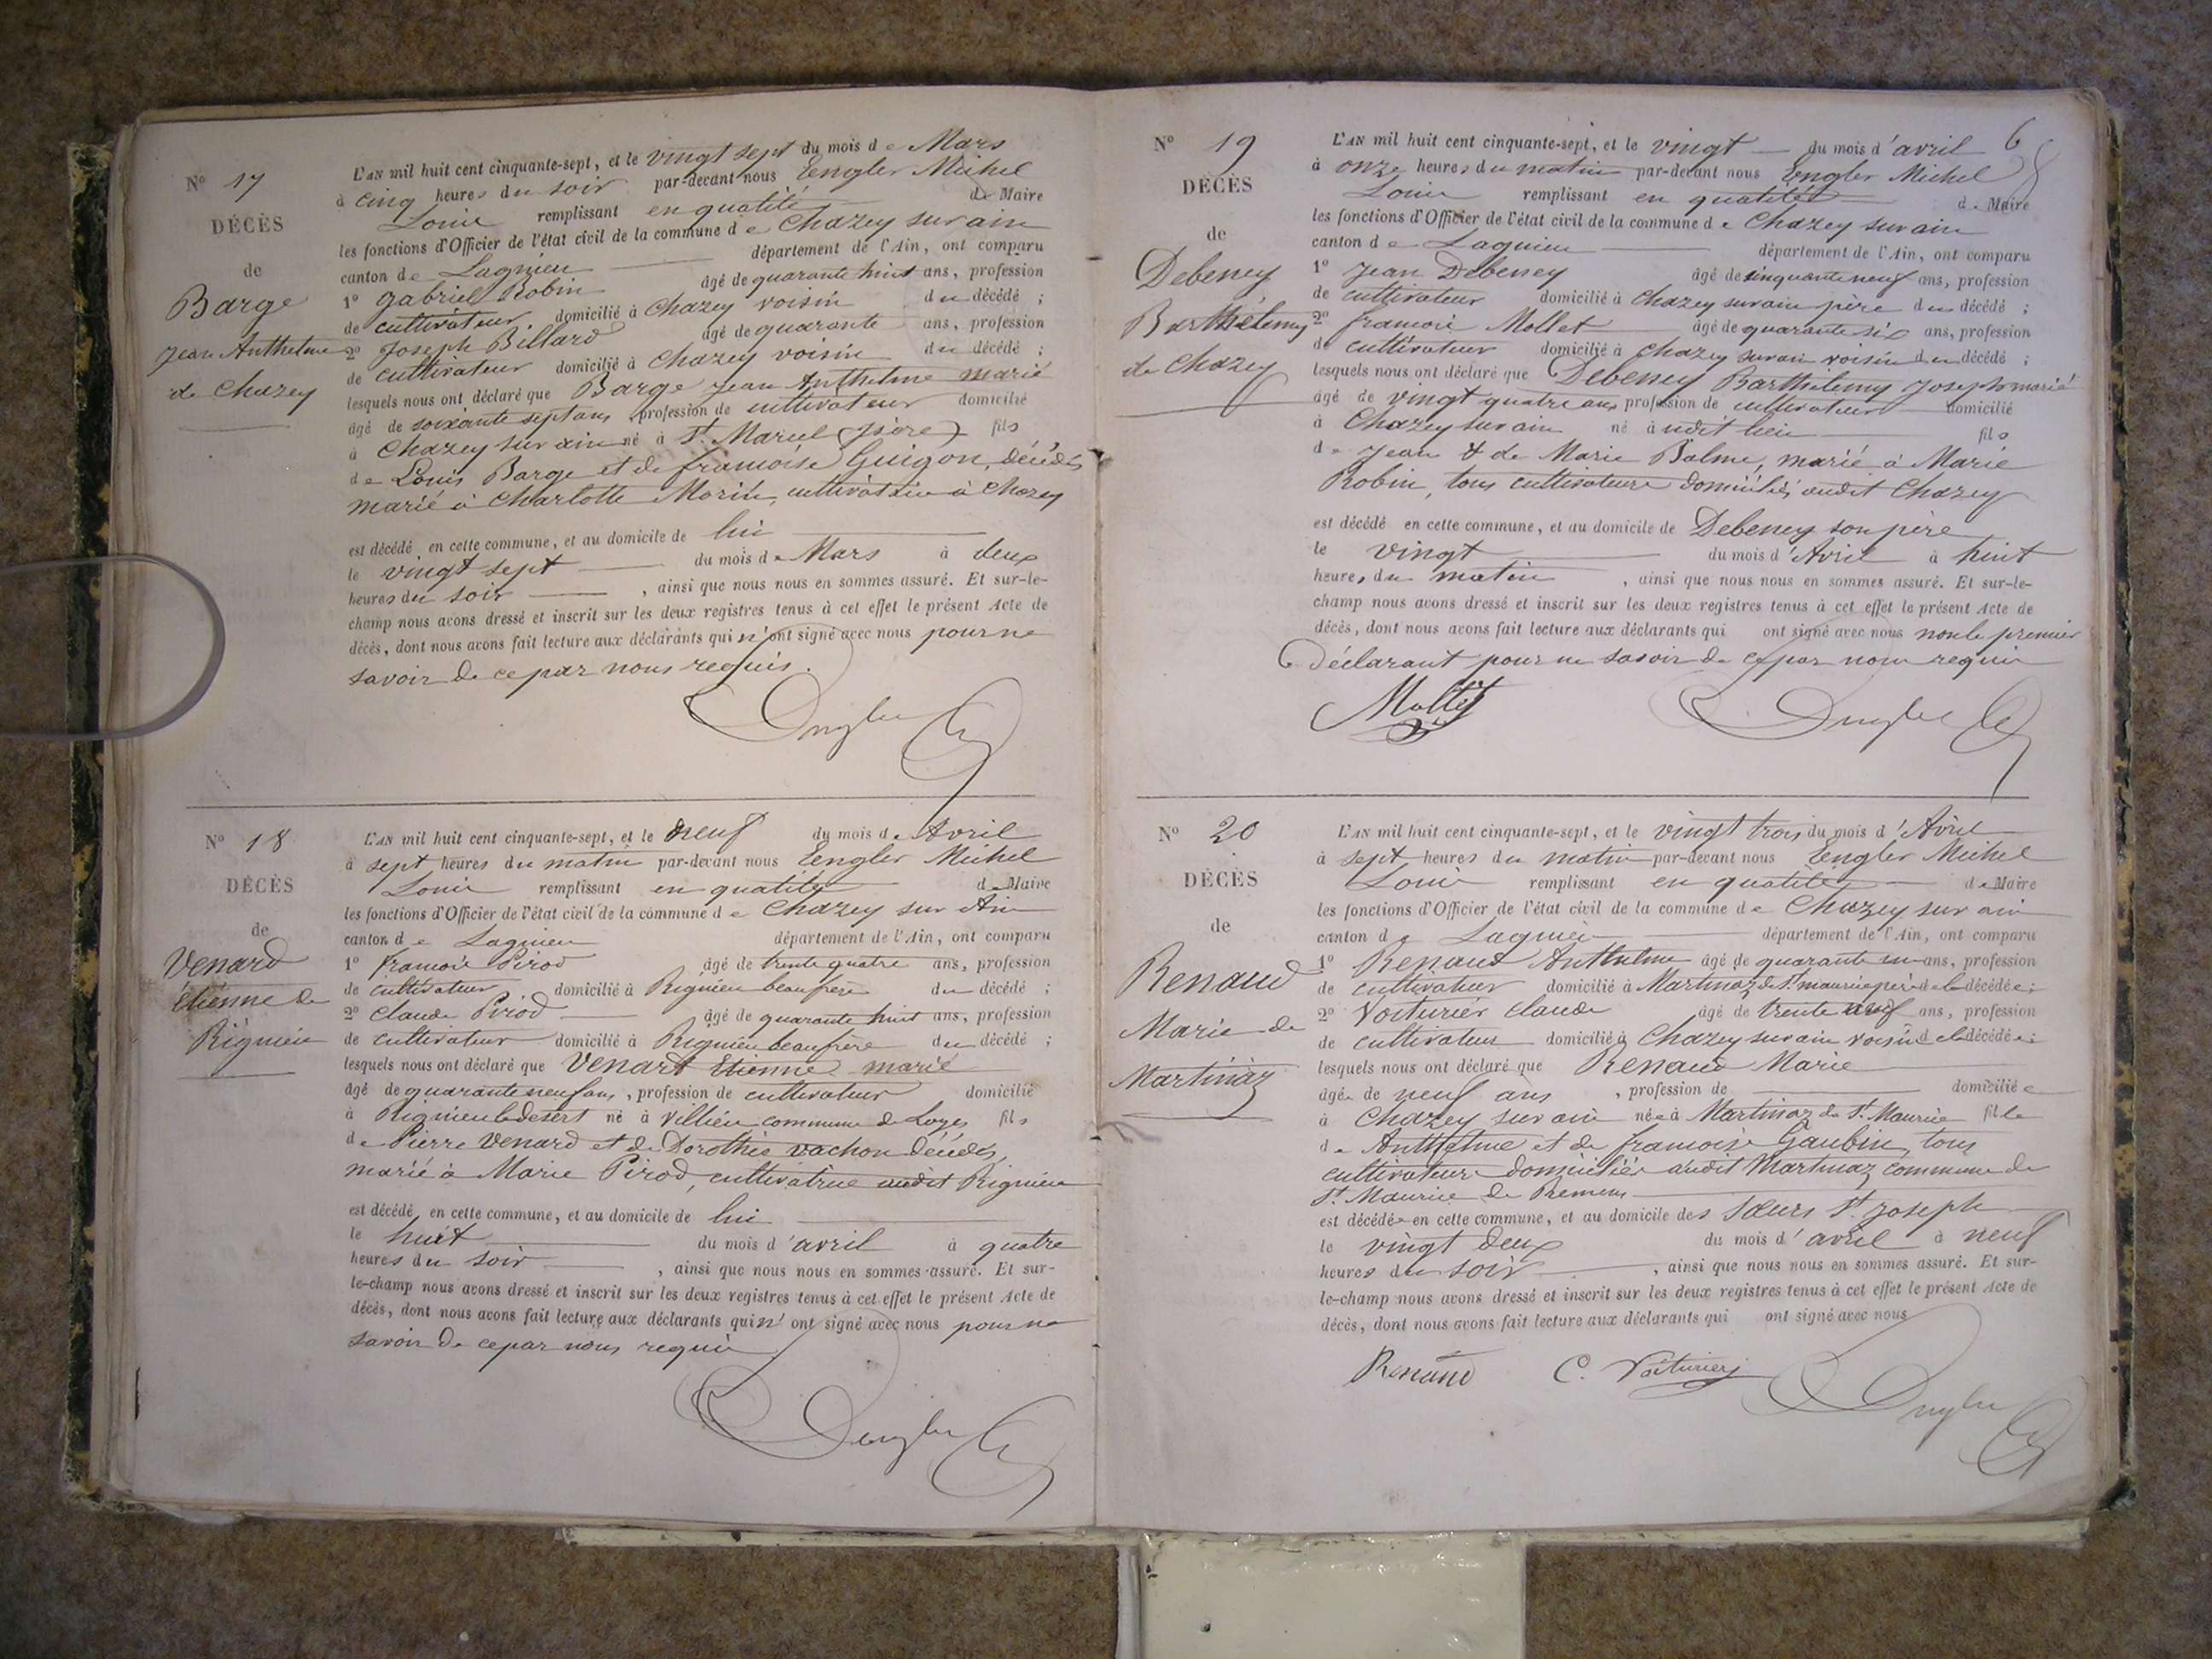 N° 17
DÉCÈS
de
Barge
Jean Anthelme
de Chazey
L'AN mil huit cent cinquante-sept, et le vingt sept du mois de Mars
à cinq heures du soir par-devant nous Engler Michel
Louis remplissant en qualité de Maire
les fonctions d'Officier de l'état civil de la commune de Chazey sur ain
canton de Lagnieu département de l'Ain, ont comparu
1° gabriel Robin âgé de quarante huit ans, profession
de cultivateur domicilié à Chazey voisin du décédé ;
2° Joseph Billard âgé de quarante ans, profession
de cultivateur domicilié à Chazey voisin du décédé ;
lesquels nous ont déclaré que Barge jean Anthelme marié
âgé de soixante sept ans, profession de cultivateur domicilié
à Chazey sur ain né à St Marcel (isère) fils
de Louis Barge et de francoise Guigon, décédés
marié à Charlotte Morin, cultivatrice à Chazey
est décédé en cette commune, et au domicile de lui
le vingt sept du mois de Mars à deux
heures du soir , ainsi que nous nous en sommes assuré. Et sur-le-
champ nous avons dressé et inscrit sur les deux registres tenus à cet effet le présent Acte de
décès, dont nous avons fait lecture aux déclarants qui n'ont signé avec nous pour ne
savoir de ce par nous requis.
Engler
N° 18
DÉCÈS
de
Venard
Etienne de
Rignieu
L'AN mil huit cent cinquante-sept, et le neuf du mois d'Avril
à sept heures du matin par-devant nous Engler Michel
Louis remplissant en qualité de Maire
les fonctions d'Officier de l'état civil de la commune de Chazey sur Ain
canton de Lagnieu département de l'Ain, ont comparu
1° francois Pirod âgé de trente quatre ans, profession
de cultivateur domicilié à Rignieu beaufrère du décédé ;
2° Claude Pirod âgé de quarante huit ans, profession
de cultivateur domicilié à Rignieu beaufrère du décédé ;
lesquels nous ont déclaré que Venard Etienne marié
âgé de quarante neuf ans, profession de cultivateur domicilié
à Rignieu le desert né à Villieu commune de Loyes fils
de Pierre Venard et de Dorothée vachon décédés,
marié à Marie Pirod, cultivatrice audit Rignieu
est décédé en cette commune, et au domicile de lui
le huit du mois d'avril à quatre
heures du soir , ainsi que nous nous en sommes assuré. Et sur-
le-champ nous avons dressé et inscrit sur les deux registres tenus à cet effet le présent Acte de
décès, dont nous avons fait lecture aux déclarants qui n'ont signé avec nous pour ne
savoir de ce par nous requis
Engler
6
N° 19
DÉCÈS
de
Debeney
Barthélemy
de Chazey
L'AN mil huit cent cinquante-sept, et le vingt du mois d'avril
à onze heures du matin par-devant nous Engler Michel
Louis remplissant en qualité de Maire
les fonctions d'Officier de l'état civil de la commune de Chazey sur ain
canton de Lagnieu département de l'Ain, ont comparu
1° Jean Debeney âgé de cinquante neuf ans, profession
de cultivateur domicilié à Chazey sur ain père du décédé ;
2° francois Mollet âgé de quarante six ans, profession
de cultivateur domicilié à Chazey sur ain voisin du décédé ;
lesquels nous ont déclaré que Debeney Barthélemy Joseph marié
âgé de vingt quatre ans profession de cultivateur domicilié
à Chazey sur ain né à udit lieu fils
de Jean & de Marie Balme, marié à Marie
Robin, tous cultivateurs domiciliés audit Chazey
est décédé en cette commune, et au domicile de Debeney son père
le vingt du mois d'Avril à huit
heures du matin , ainsi que nous nous en sommes assuré. Et sur-le-
champ nous avons dressé et inscrit sur les deux registres tenus à cet effet le présent Acte de
décès, dont nous avons fait lecture aux déclarants qui ont signé avec nous non le premier
déclarant pour ne savoir de ce par nous requis
Mollet Engler
N° 20
DÉCÈS
de
Renaud
Marie de
Martinaz
L'AN mil huit cent cinquante-sept, et le vingt trois du mois d'Avril
à sept heures du matin par-devant nous Engler Michel
Louis remplissant en qualité de Maire
les fonctions d'Officier de l'état civil de la commune de Chazey sur ain
canton de Lagnieu département de l'Ain, ont comparu
1° Renaud Anthelme âgé de quarante un ans, profession
de cultivateur domicilié à Martinaz de St maurice père de la décédée ;
2° Voiturier Claude âgé de trente neuf ans, profession
de cultivateur domicilié à Chazey sur ain voisin de la décédée ;
lesquels nous ont déclaré que Renaud Marie
âgée de neuf ans , profession de domiciliée
à Chazey sur ain née à Martinaz de St Maurice fille
de Anthelme et de francoise Gaubin, tous
cultivateurs domiciliés audit Martinaz commune de
St Maurice de Remens
est décédée en cette commune, et au domicile des Sœurs St Joseph
le vingt deux du mois d'avril à neuf
heures du soir , ainsi que nous nous en sommes assuré. Et sur-
le-champ nous avons dressé et inscrit sur les deux registres tenus à cet effet le présent Acte de
décès, dont nous avons fait lecture aux déclarants qui ont signé avec nous
Renaud C. Voiturier Engler